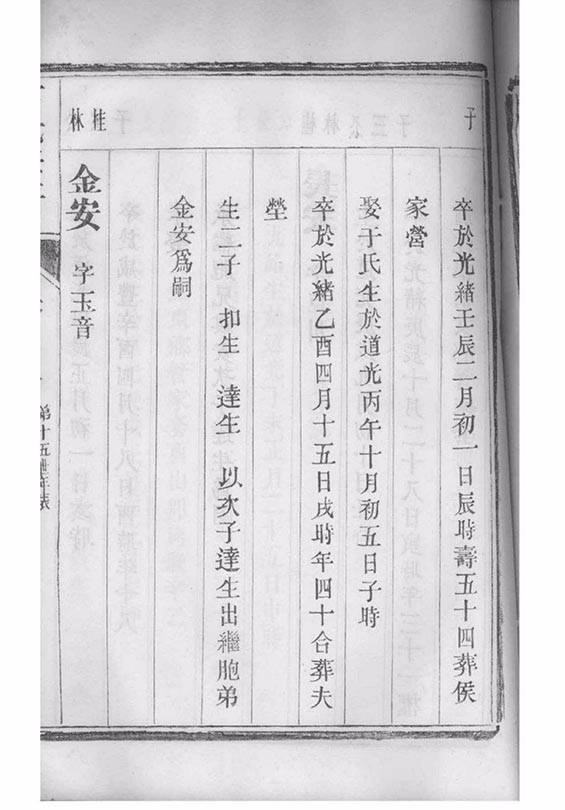 子
卒於光緒壬辰二月初一日辰時壽五十四葬侯
家營
娶于氏生於道光丙午十月初五日子時
卒於光緒乙酉四月十五日戌時年四十合葬夫
塋
生二子 扣生 達生 以次子達生出繼胞弟
金安為嗣
桂林
金安 字玉音
第十五世年表